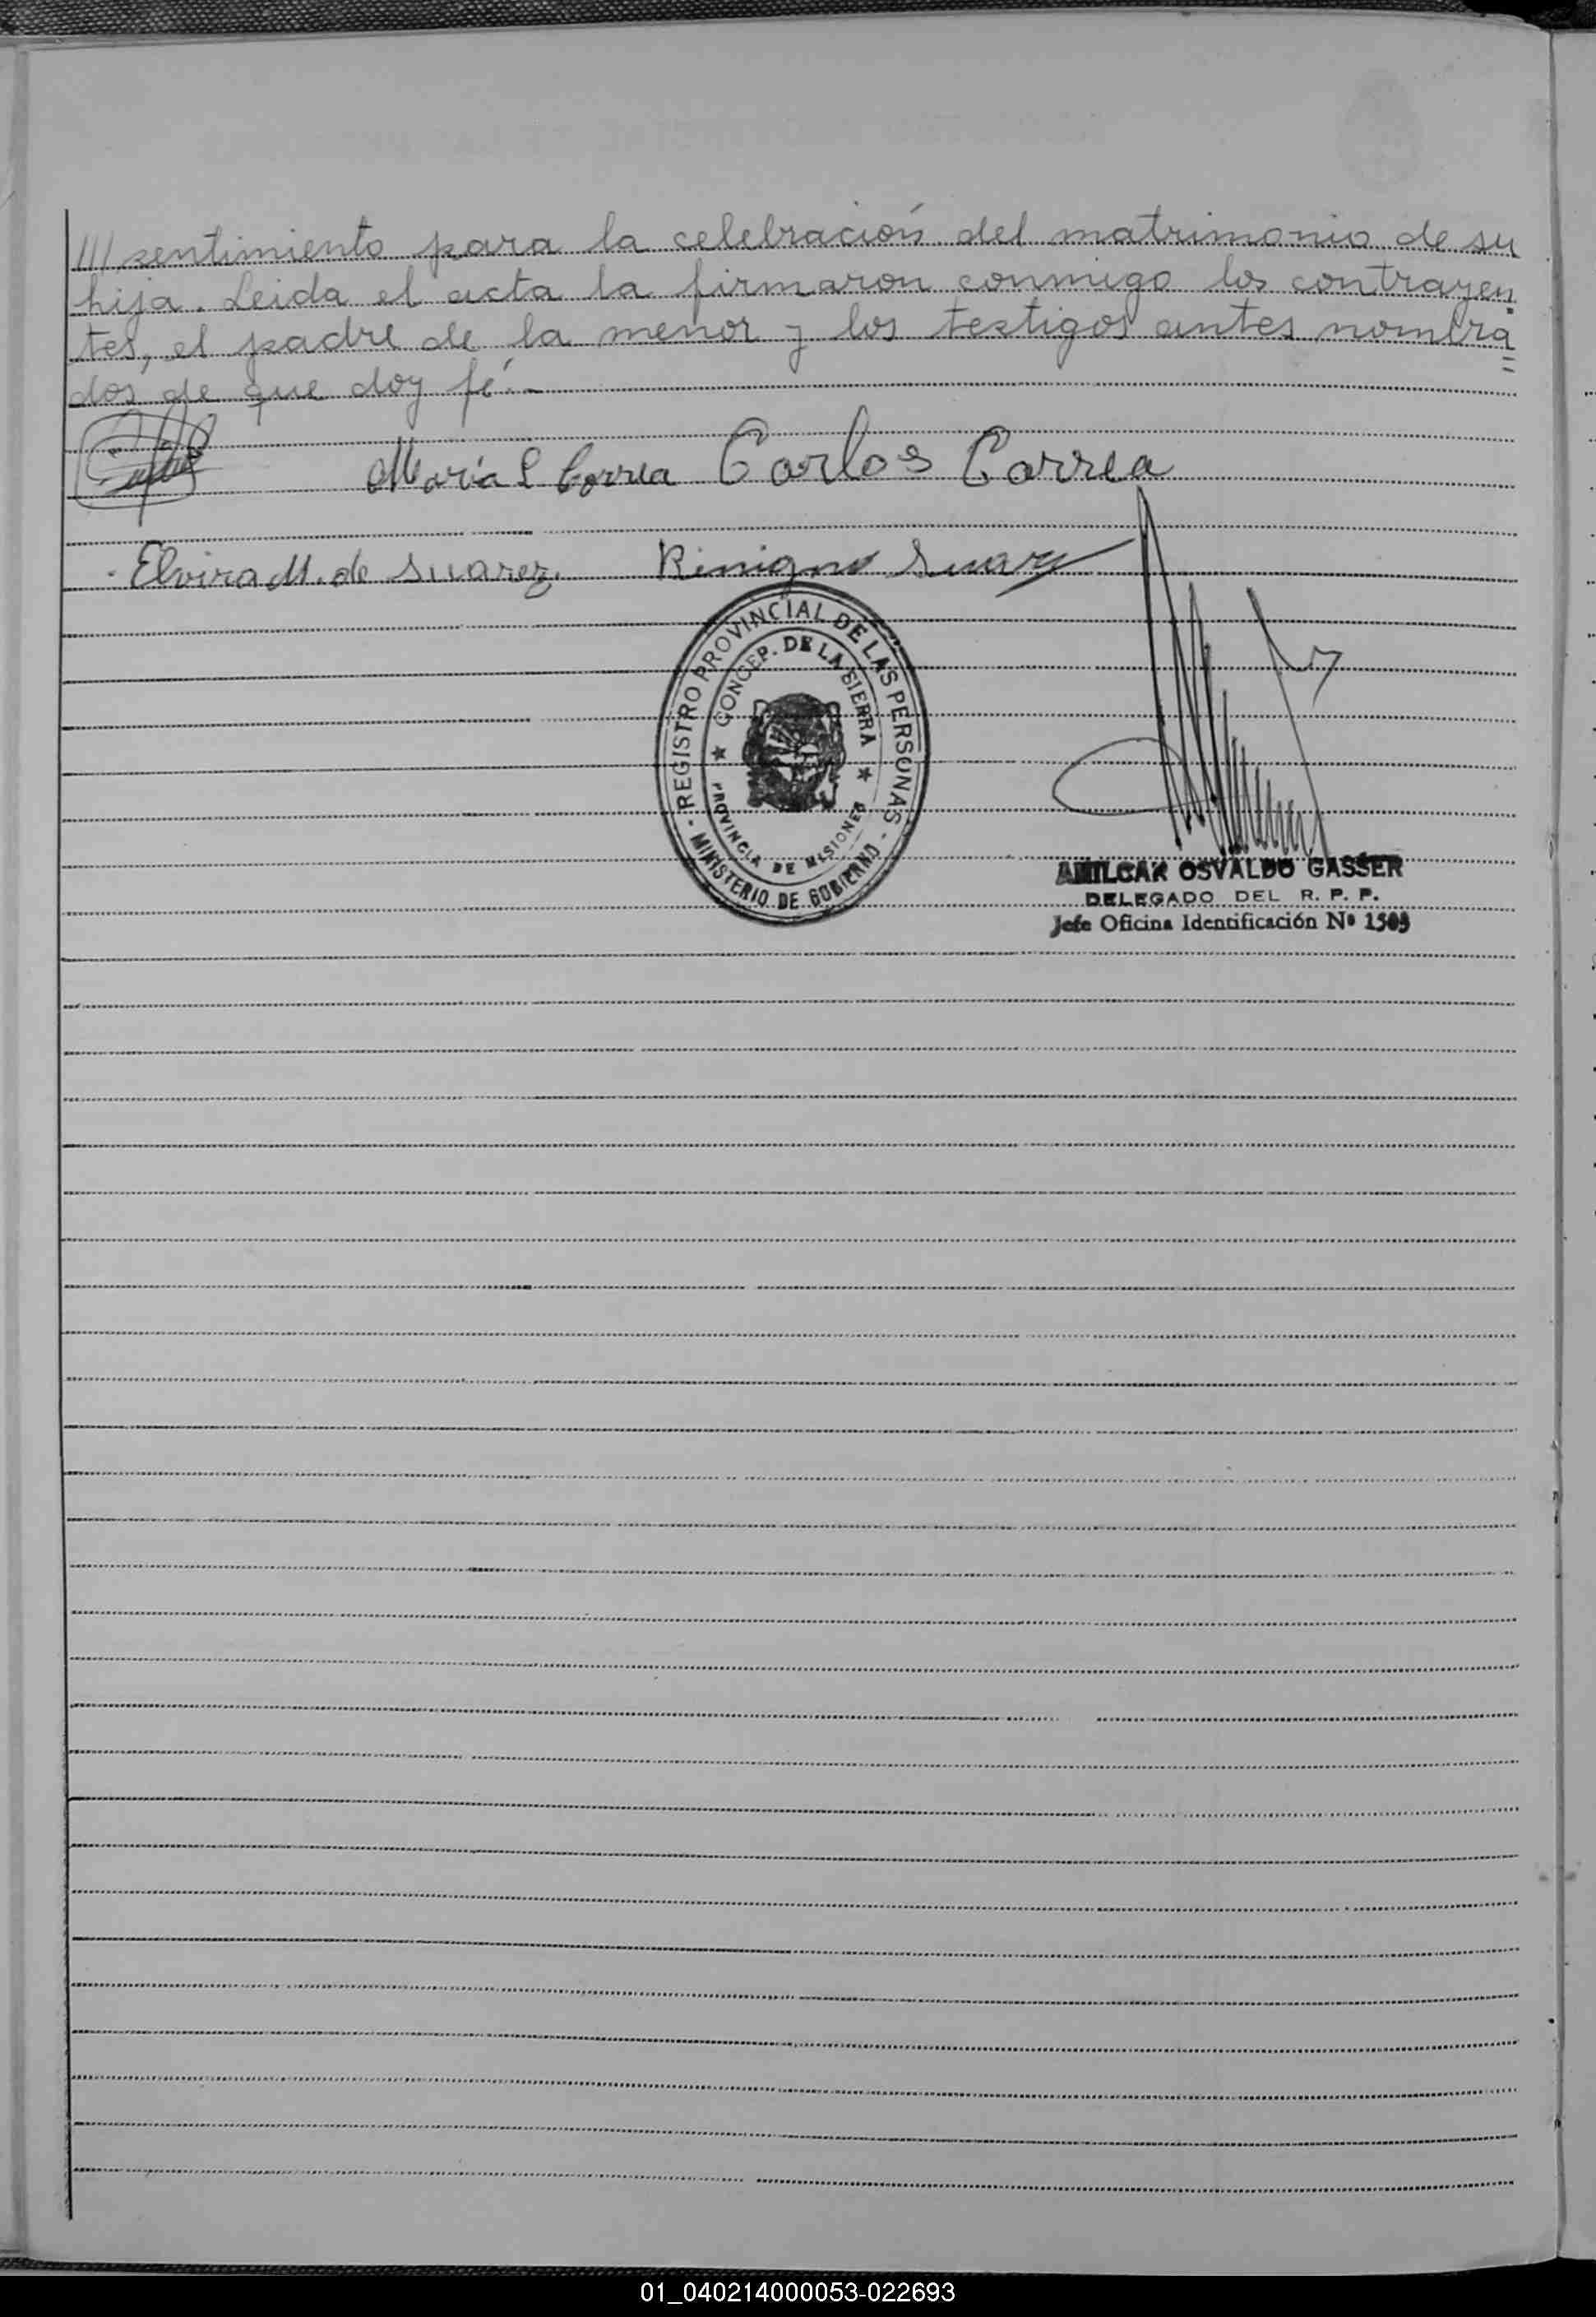 /// sentimiento para la celebración del matrimonio de su
hija. Leida el acta la firmaron conmigo los contrayen
tes, el padre de la menor y los testigos antes nombra=
dos de que doy fé.-
Maria E Correa Carlos Correa
Elvira M. de Suarez. Binigno Suarez
REGISTRO PROVINCIAL DE LAS PERSONAS
CONCEP. DE LA SIERRA
PROVINCIA DE MISIONES
- MINISTERIO DE GOBIERNO -
AMILCAR OSVALDO GASSER
DELEGADO DEL R. P. P.
Jefe Oficina Identificación Nº
01_040214000053-022693